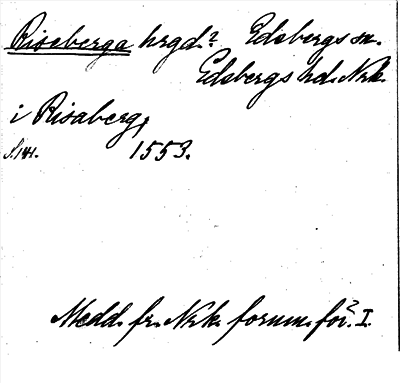 Riseberga hrgd? Edsbergs sn.
Edsbergs hd. Nrk.
i Risaberg,
S. 141. 1553.
Medd. fr. Nrk. fornm. för. I.